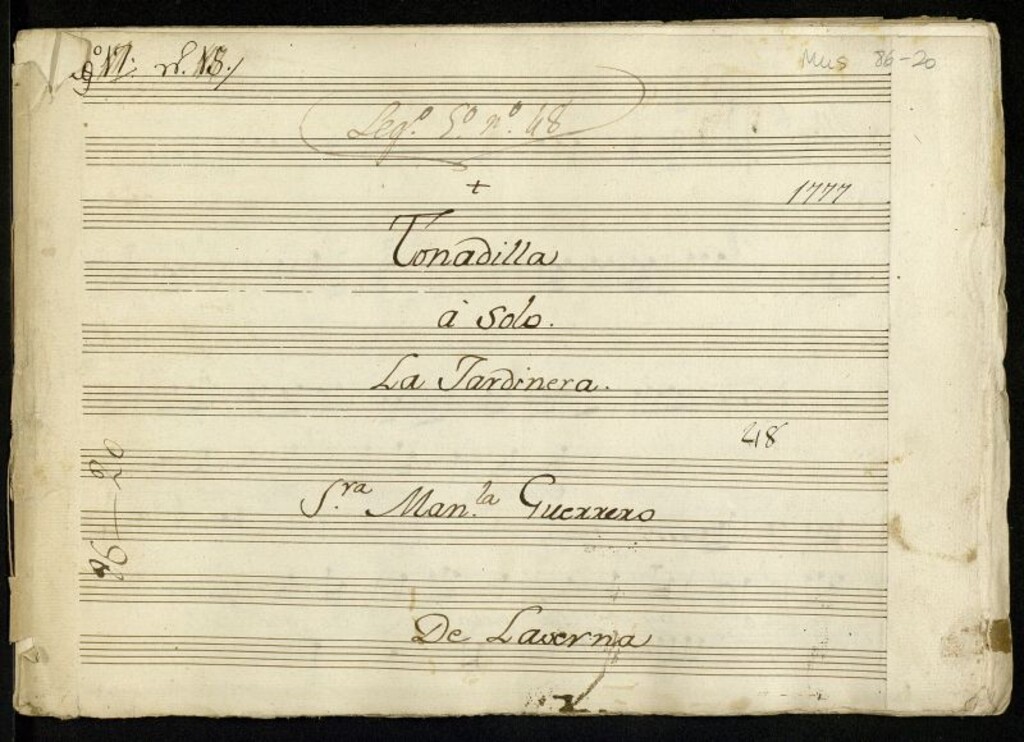 Mus 86-20
Leg.º 5.º n.º 48
+
1777
Tonadilla
à Solo.
La Jardinera.
48
S.ra Man.la Guerrero
86-20
De Laserna